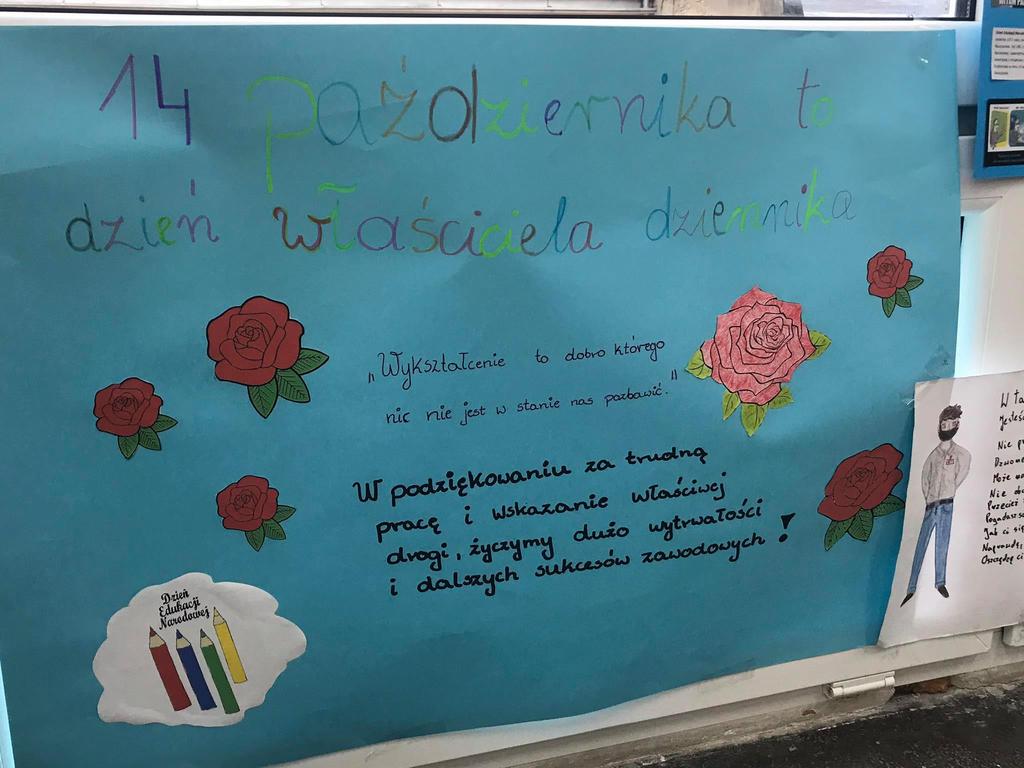 14 października to
dzień właściciela dziennika
„Wykształcenie to dobro którego
nic nie jest w stanie nas pozbawić."
W podziękowaniu za trudną
pracę i wskazanie właściwej
drogi, życzymy dużo wytrwałości
i dalszych sukcesów zawodowych!
Dzień
Edukacji
Narodowej
W
Nie
Może
Nie
Przecież
Jak ci się